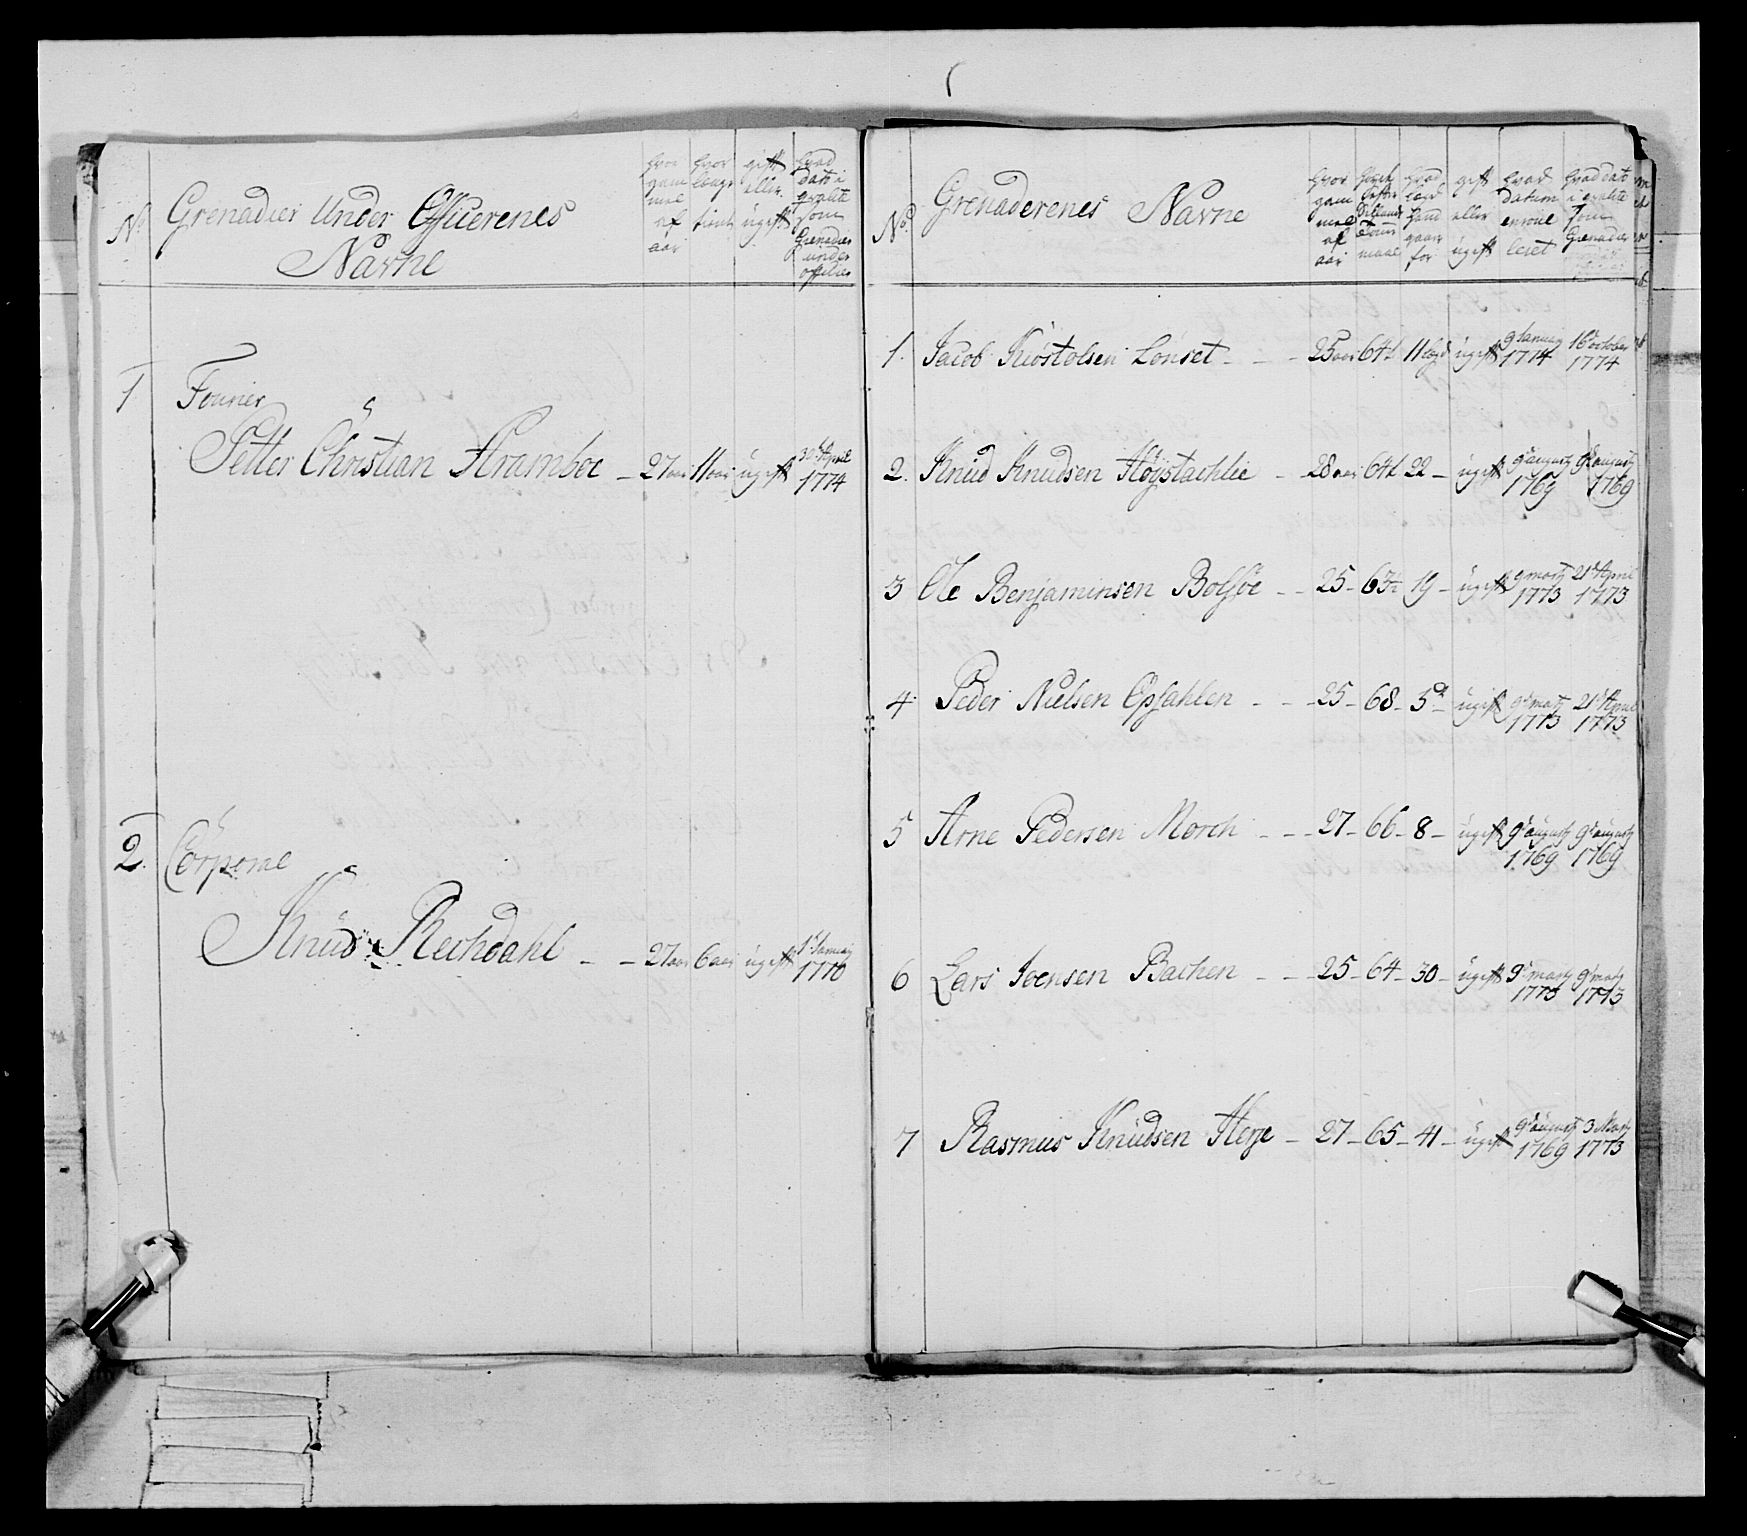 No Grenadier Under Officerenes Navne
hvor gammel af aar
hvor længe tient
gift eller ugift
hvad dato i qvalite som Grenadier under officier
1 Fourier
Petter Christian Hramboe - 27 aar 11 aar ugift 30 April 1774
2. Corporal
Knud Rechdahl - - 27 aar 6 aar ugift 1 January 1770
No Grenaderenes Navne
hvor gammel af aar
hvad lægd hand gaar for
gift eller ugift
hvad datum enroulleret
hvad dato i qvalite som Grenadier
1. Jacob Kiöstolsen Lönset - - - 25 aar 64½ 11 lægd ugift 9 January 1774 16 october 1774
2. Knud Knudsen Höystachlie - 28 aar 64½ 22 - ugift 9 augusty 1769 9 augusty 1769
3 Ole Benjaminsen Bolsöe - - 25 - 63½ 19 - ugift 9 marty 1773 21 April 1773
4 Peder Nielsen Opsahlen - - - 25 - 68 - 5 - ugift 9 marty 1773 21 April 1773
5 Arne Pedersen Morch - - - 27 - 66 - 8 - ugift 9 augusty 1769 9 augusty 1769
6 Lars Joensen Bachen - - - 25 - 64 - 30 - ugift 9 marty 1773 9 marty 1773
7 Rasmus Knudsen Herje - 27 - 65 - 41 - ugift 9 augusty 1769 3 Marty 1773